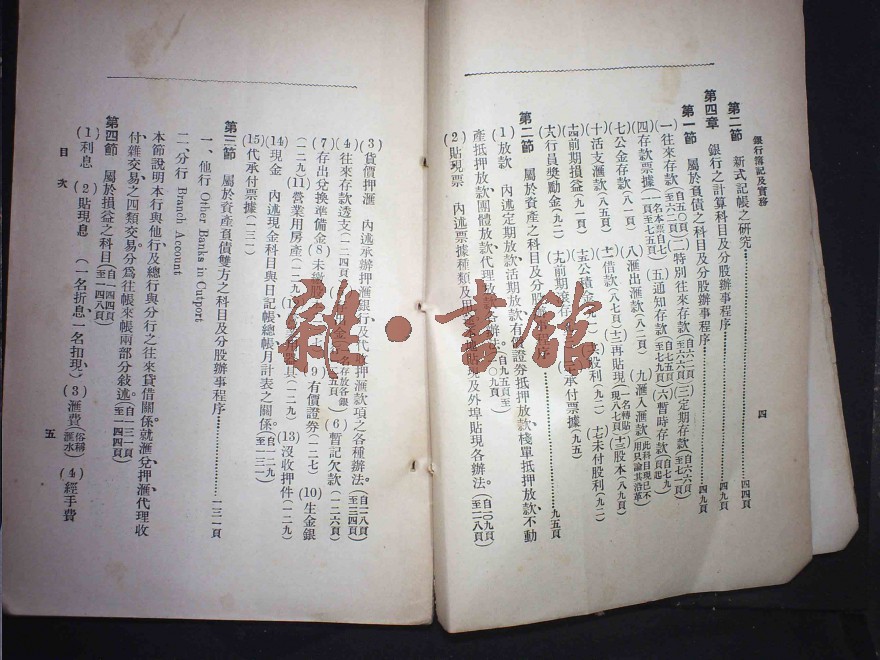 銀行簿記及實務
四
第二節 新式記帳之研究……四四頁
第四章 銀行之計算科目及分股辦事程序……四九頁
第一節 屬於負債之科目及分股辦事程序……四九頁
(一)往來存款(自五〇頁至六二頁)(二)特別往來存款(自六二頁至六六頁)(三)定期存款(自六六頁至七一頁)
(四)存款票據(一名本票自七一頁至七五頁)(五)通知存款(自七五頁至七九頁)(六)暫時存款(自七九頁起)
(七)公金存款(八一頁)(八)滙出滙款(八二頁)(九)滙入滙款(此科目現已不用只論其沿革)
(十)活支滙款(八五頁)(十一)借款(八七頁)(十二)再貼現(一名轉貼現八七頁)(十三)股本(八九頁)
(十四)前期損益(九一頁)(十五)公積 (十七)未付股利(九二)
(十八)行員奬勵金(九二)(十九)前期滾存 承付票據(九五)
第二節 屬於資產之科目及分股 程序……九五頁
(1)放款 內述定期放款、活期放款、有價證券抵押放款、棧單抵押放款、不動
產抵押放款、團體放款、代理放 各辦法。(自九五頁至一〇九頁)
(2)貼現票 內述票據種類及用 貼現及外埠貼現各辦法。(自一〇九頁至一一八頁)
(3)貨價押滙 內述承辦押滙銀行及代收押滙款項之各種辦法。(自一一八頁至一三四頁)
(4)往來存款透支(一二四頁) 金(一名存放各銀 五頁)(6)暫記欠款(一二六頁)
(7)存出兌換準備金(8)未繳股 (9)有價證券(一二七)(10)生金銀
(一二九)(11)營業用房產(一二九) 器具(一二九)(13)沒收押件(一二九)
(14)現金 內述現金科目與日記帳、總帳、月計表之關係(自一二九至一三一)
(15)代承付票據(一三一)
第三節 屬於資產負債雙方之科目及分股辦事程序……一三一頁
一、他行 Other Banks in Outport
二、分行 Branch Account
本節說明本行與他行及總行與分行之往來貸借關係。就滙兌、押滙、代理收
付、雜交易、之四類交易分爲往帳來帳兩部分敘述。(自一三一頁至一四四頁)
第四節 屬於損益之科目(自一四四頁至一四八頁)
(1)利息 (2)貼現息 (一名折息、一名扣現)(3)滙費(俗稱滙水)(4)經手費
目次
五
雜·書館